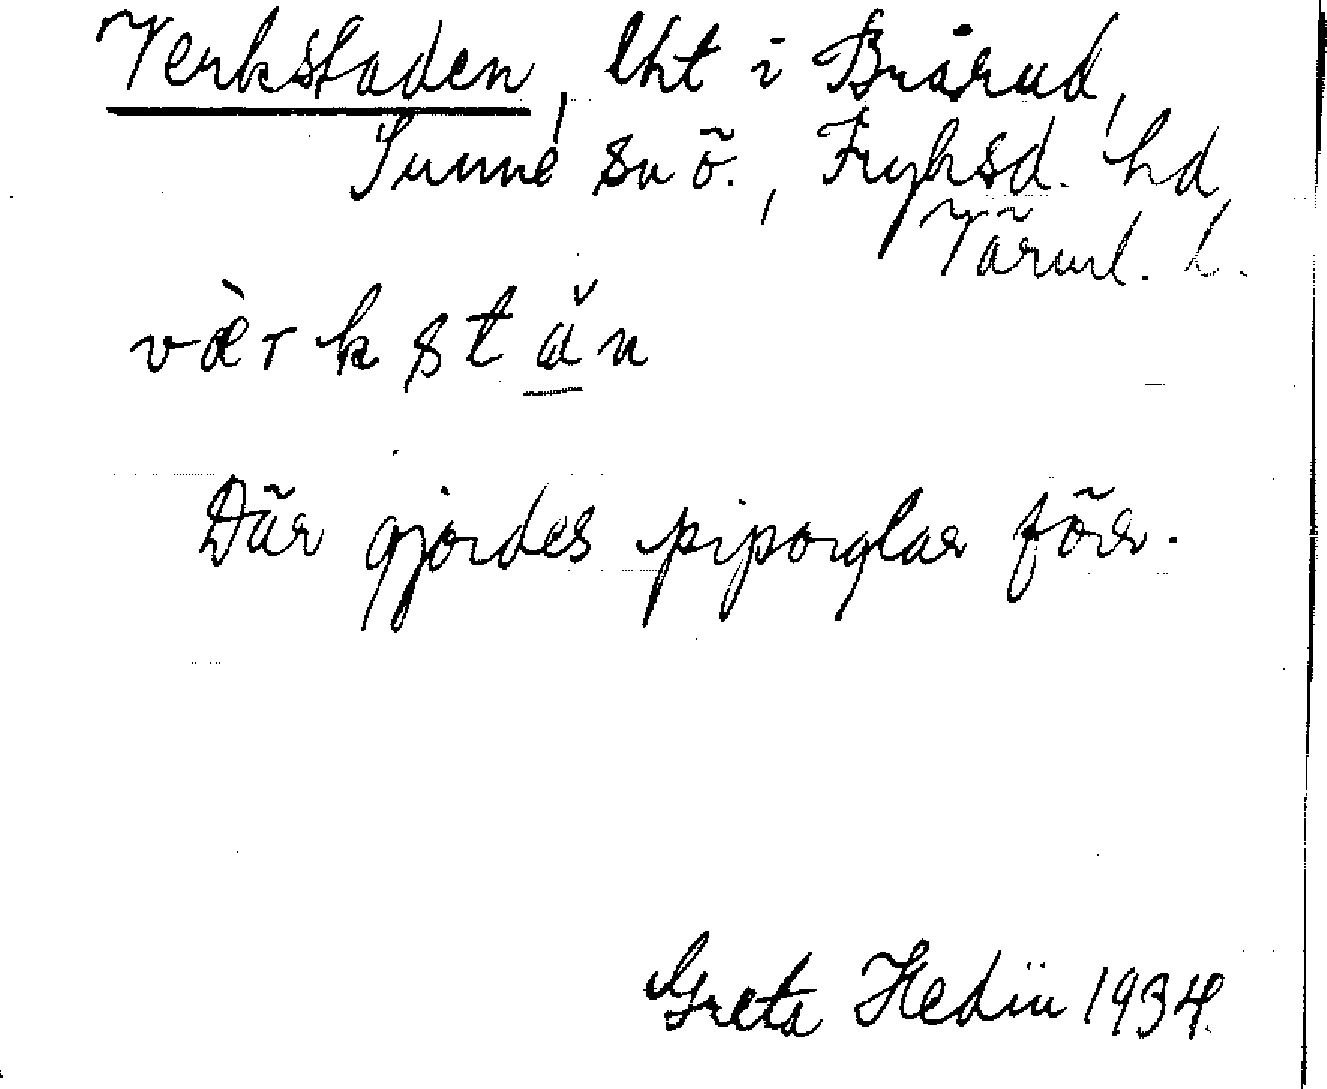 Verkstaden, lht i Brårud,
Sunne sn ö., Fryksd. hd,
Värml. l.
vær̀kstăn
Där gjordes piporglar förr.
Greta Hedin 1934.